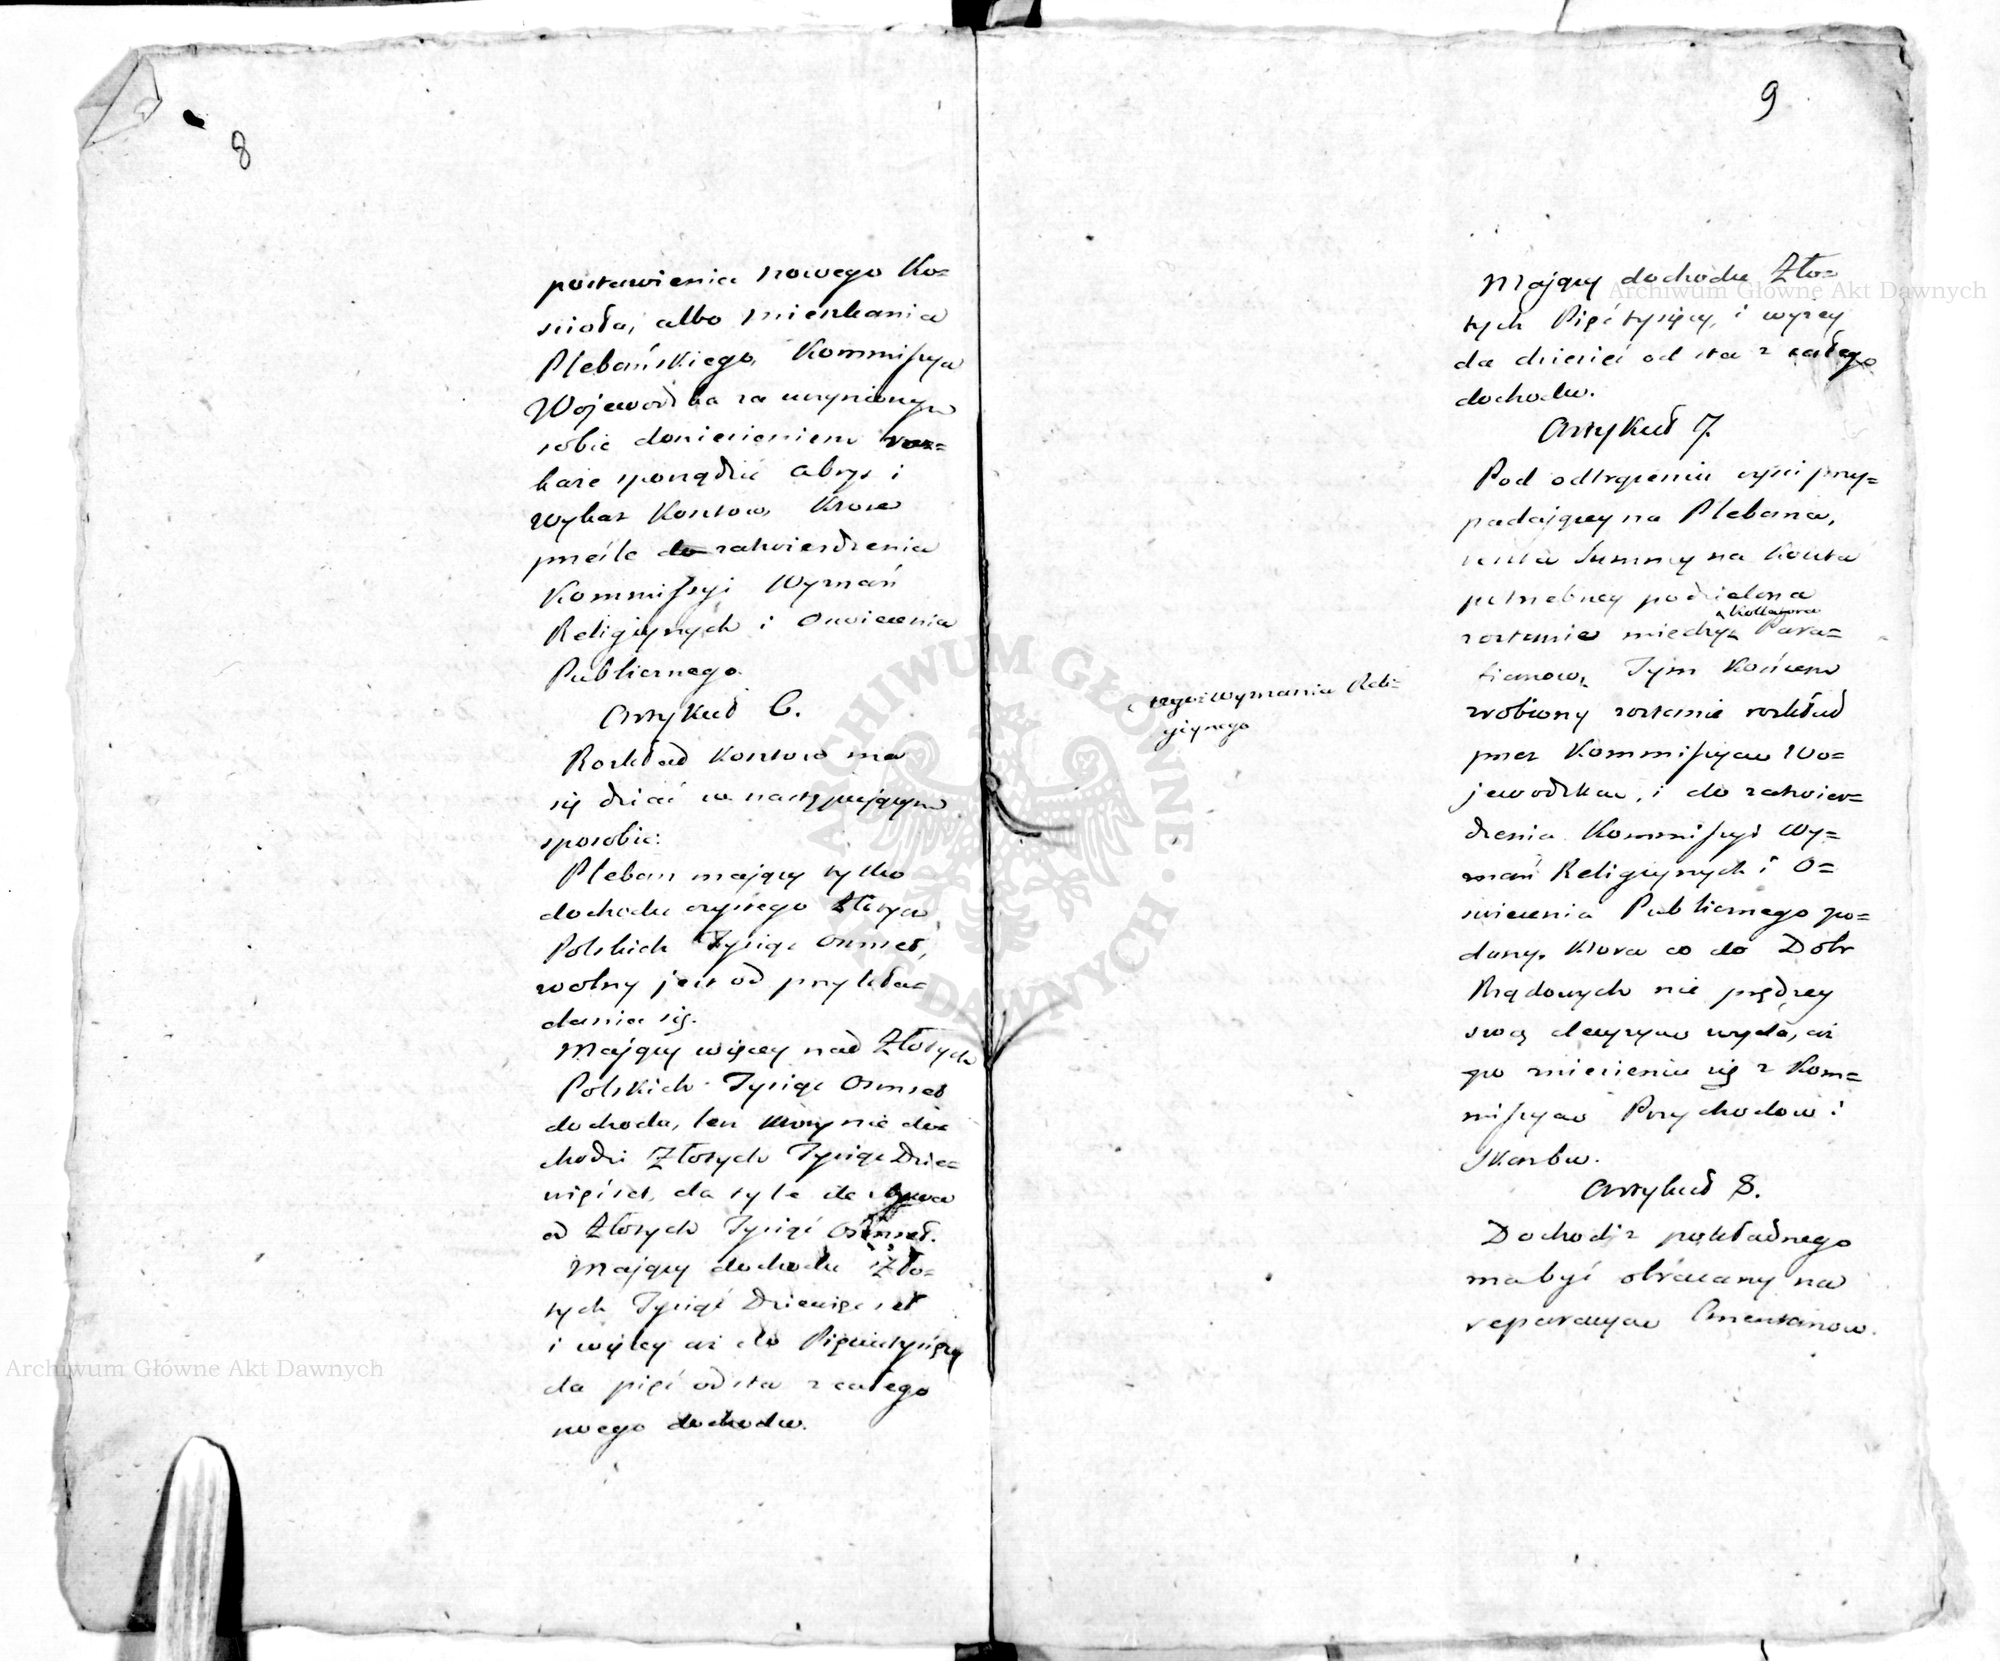 8
postawienia nowego Ko=
scioła, albo mieszkania
Plebańskiego, Kommissya
Wojewodzka za uczynionym
sobie doniesieniem roz=
każe sporządzić abrys i
wykaz Kosztow, Ktore
prześle do zatwierdzenia
Kommissyi Wyznań
Religiynych i Oswiecenia
Publicznego.
Artykuł 6.
Rozkład Kosztow ma
się dziać w następuiącym
sposobie:
Pleban maiący tylko
dochodu czystego Złotych
Polskich Tysiąc Osmset,
wolny jest od przykła=
dania się.
Maiący więcey nad Złotych
Polskich Tysiąc Osmset
dochodu, ten ktory nie do=
chodzi Złotych Tysiąc Dzie=
więćset, da tyle ile
od Złotych Tysiąc Osmset.
Maiący dochodu Zło=
tych Tysiąc Dziewięćset
i więcey aż do Pięciutysięcy
da pięć od sta z całego
swego dochodu.
9
Maiący dochodu Zło=
tych Pięć tysięcy, i wyżey
da dziesięć od sta z całego
dochodu.
Artykuł 7.
Pod odtrąceniu części przy=
padaiącey na Plebana,
reszta Summy na koszta
potrzebney podzielona
zostanie między Kollatora
Para=
fianow, Tym Końcem
tegoż wyznania Reli=
giynego
zrobiony zostanie rozkład
przez Kommissyą Wo=
jewodzką, i do zatwier=
dzenia Kommissyi Wy=
znań Religiynych i O=
swiecenia Publicznego po=
dany. Ktora co do Dobr
Rządowych nie prędzey
swą decyzyą wyda, aż
po zniesieniu się z Kom=
missyą Przychodow i
Skarbu.
Artykuł 8.
Dochod z pokładnego
ma być obracany na
reparacyą Cmentarzow.
Archiwum Główne Akt Dawnych
Archiwum Główne Akt Dawnych
ARCHIWUM GŁÓWNE · AKT DAWNYCH ·